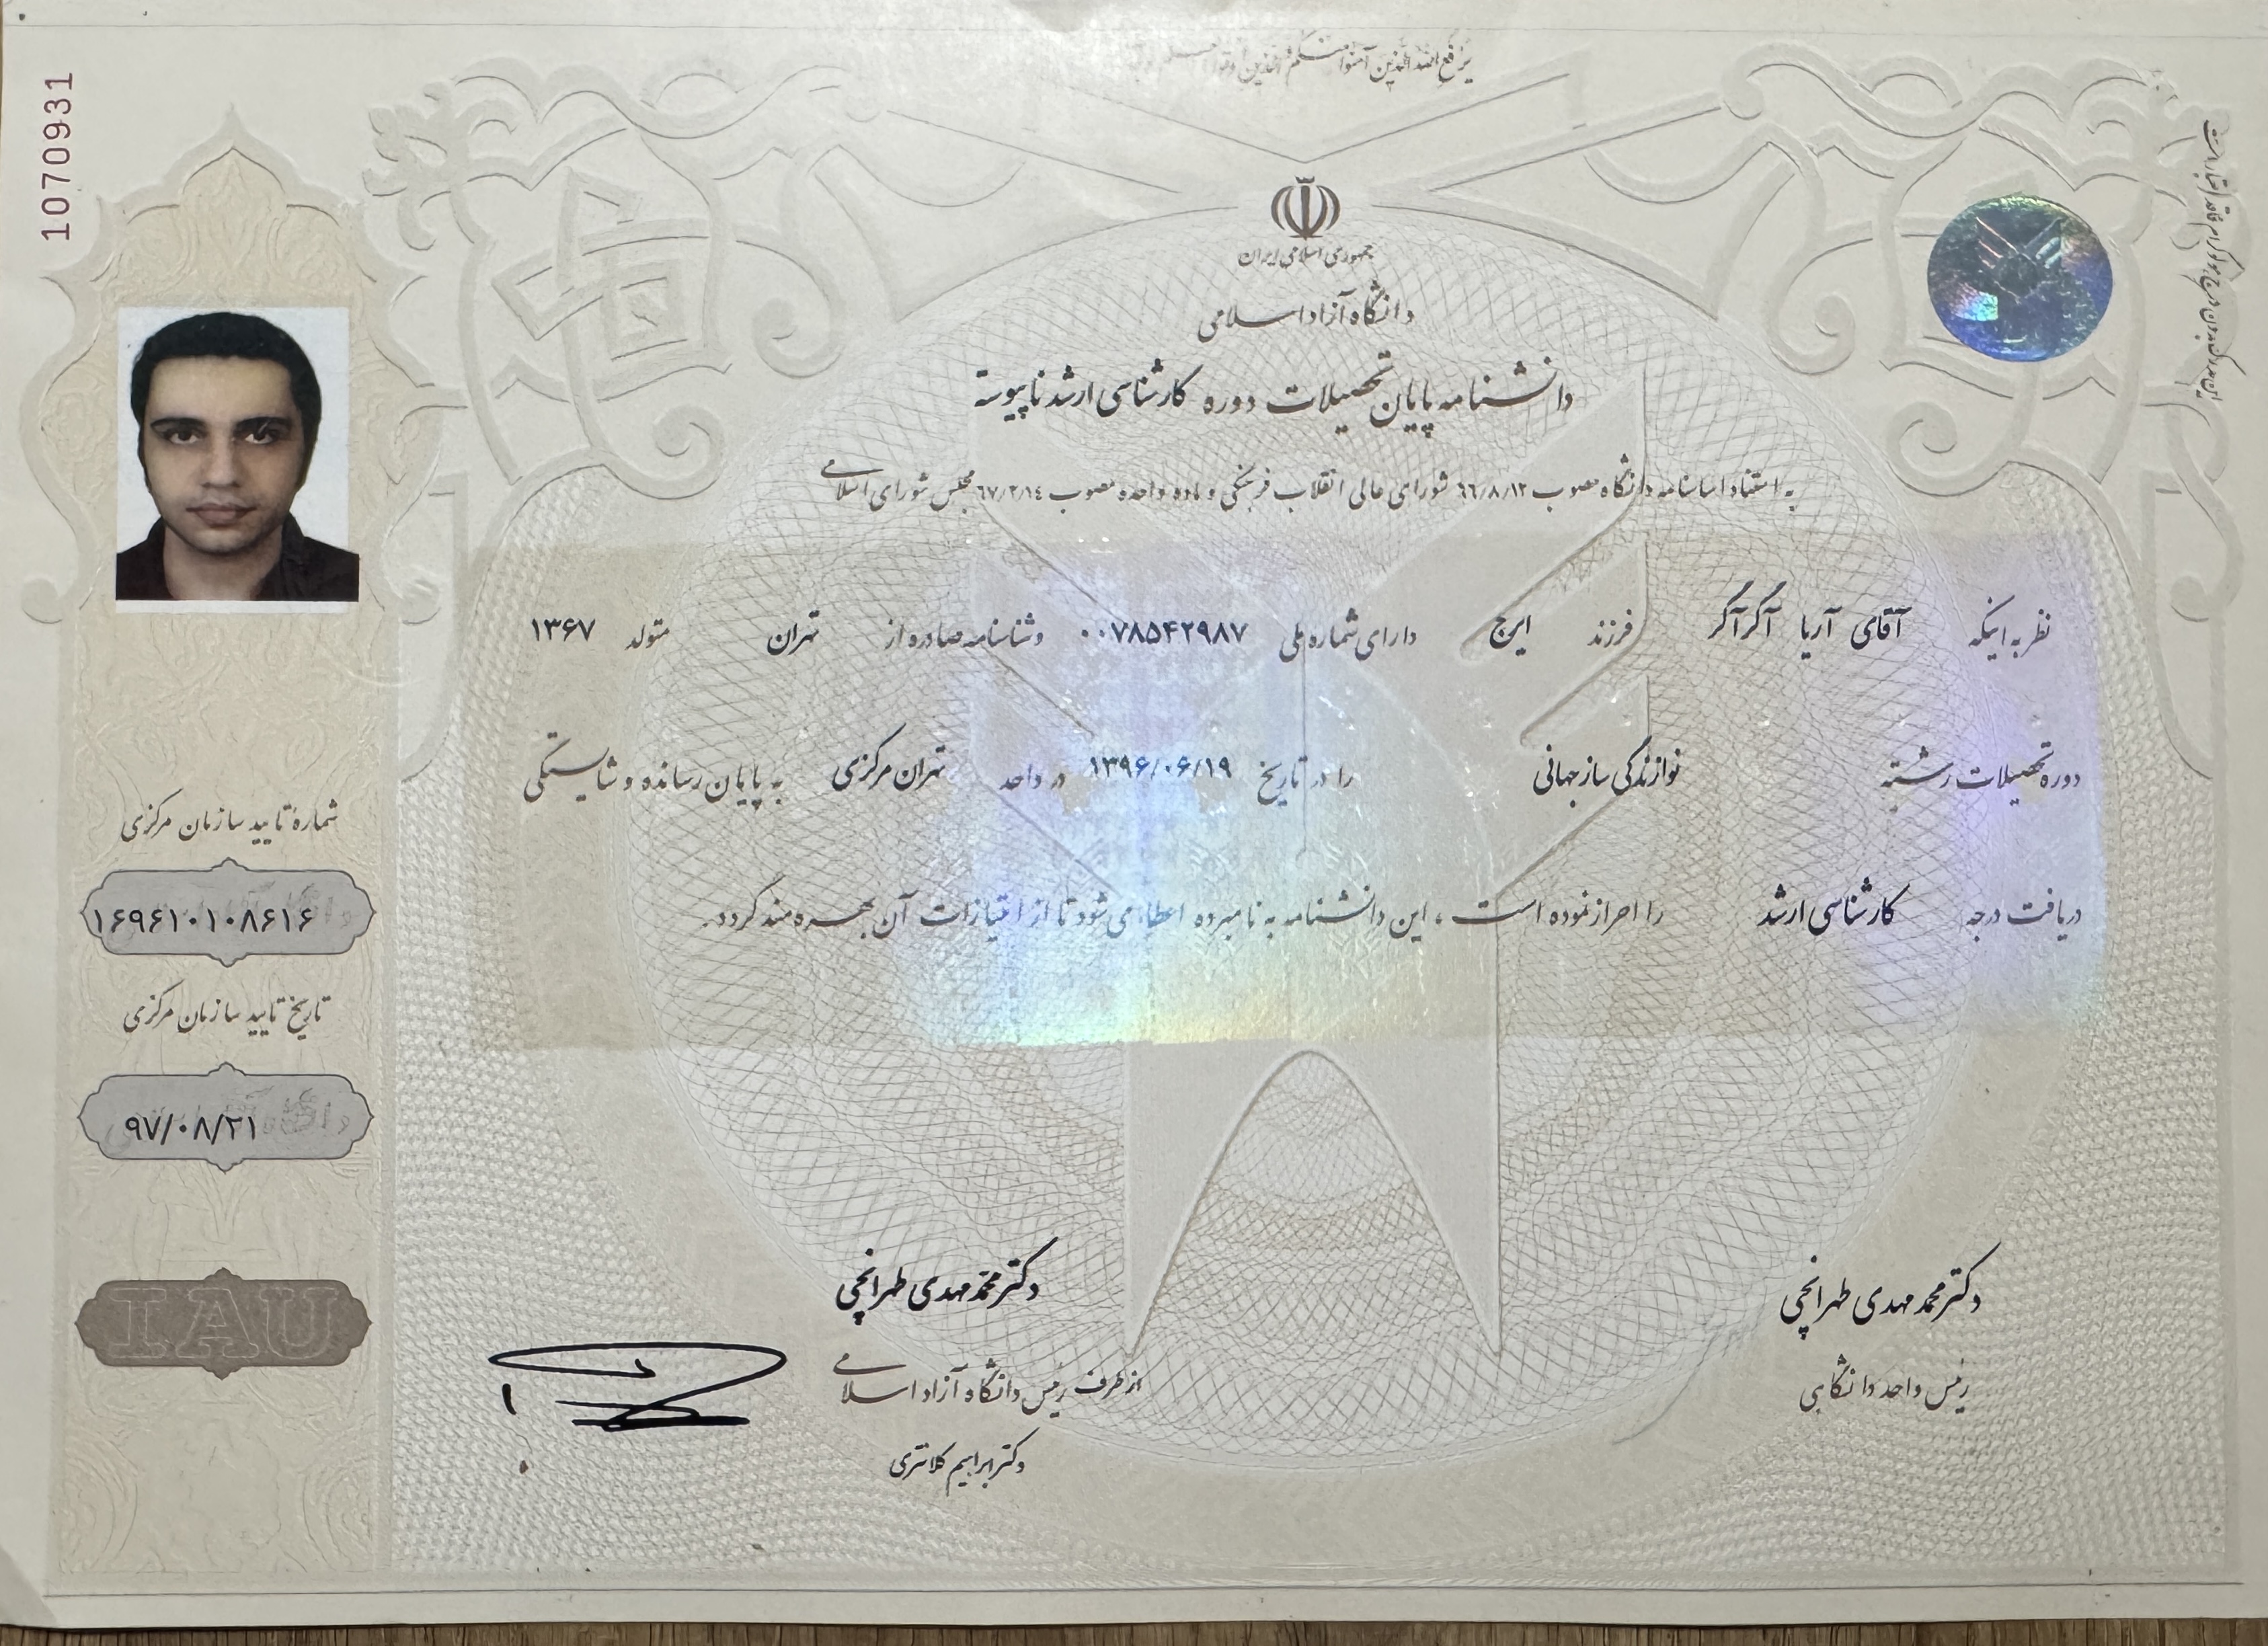 1070931
جمهوری اسلامی ایران
دانشگاه آزاد اسلامی
دانشنامه پایان تحصیلات دوره کارشناسی ارشد ناپیوسته
به استناد اساسنامه دانشگاه مصوب ٦٦/٨/١٢ شورای عالی انقلاب فرهنگی و ماده واحده مصوب ٦٧/٢/١٤ مجلس شورای اسلامی
نظر به اینکه آقای آریا آگرآگر فرزند ایرج دارای شماره ملی ۰۰۷۸۵۴۲۹۸۷ و شناسنامه صادره از تهران متولد ۱۳۶۷
دوره تحصیلات رشته نوازندگی ساز جهانی را در تاریخ ۱۳۹۶/۰۶/۱۹ در واحد تهران مرکزی به پایان رسانده و شایستگی
دریافت درجه کارشناسی ارشد را احراز نموده است ، این دانشنامه به نامبرده اعطاء می شود تا از امتیازات آن بهره مند گردد.
شماره تایید سازمان مرکزی
۱۶۹۶۱۰۱۰۸۶۱۶
تاریخ تایید سازمان مرکزی
۹۷/۰۸/۲۱
IAU
دکتر محمد مهدی طهرانچی
رئیس واحد دانشگاهی
دکتر محمد مهدی طهرانچی
از طرف رئیس دانشگاه آزاد اسلامی
دکتر ابراهیم کلانتری